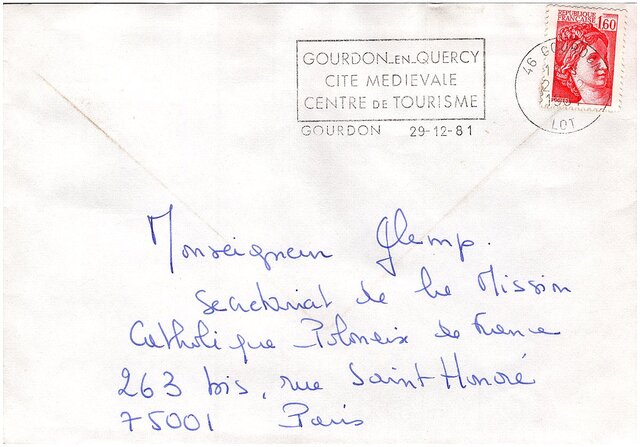 GOURDON-EN-QUERCY
CITE MEDIEVALE
CENTRE DE TOURISME
GOURDON 29-12-81
REPUBLIQUE
FRANCAISE
1,60
46 GOURDON
LOT
Monseigneur Glemp.
Secretariat de la Mission
Catholique Polonaix de France
263 bis, rue Saint Honoré
75001 Paris